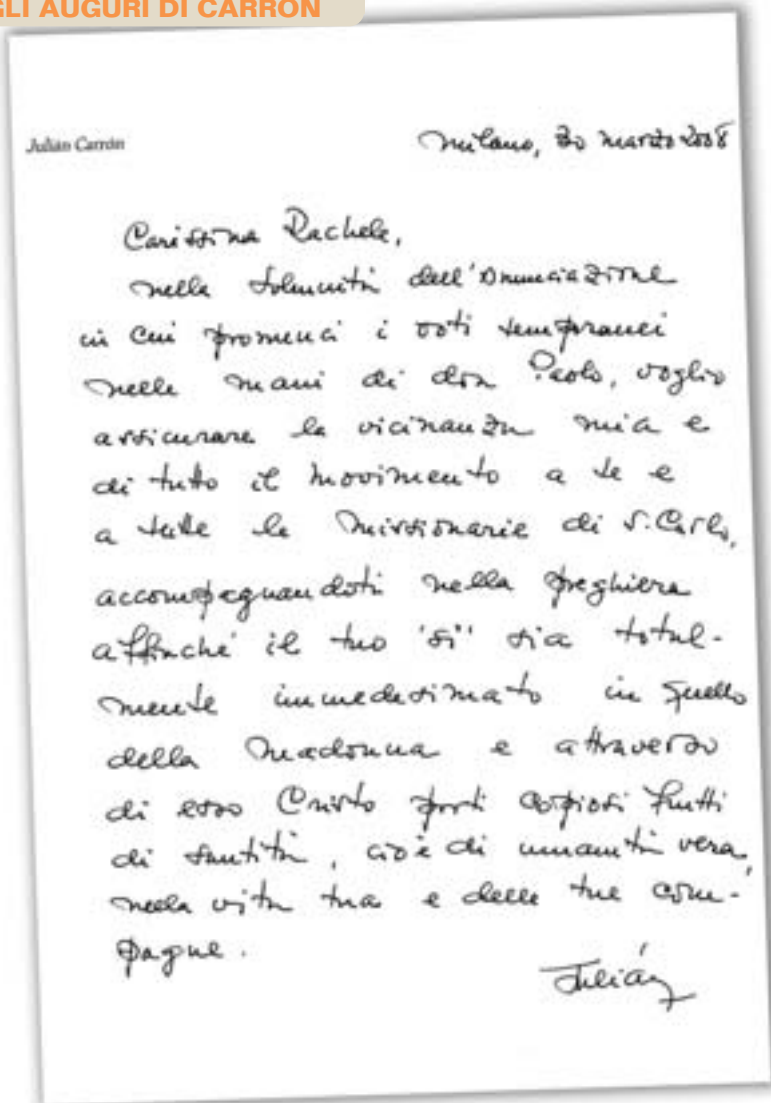 GLI AUGURI DI CARRÓN
Julián Carrón
Milano, 30 marzo 2008
Carissima Rachele,
nella solennità dell'Annunciazione
in cui pronunci i voti temporanei
nelle mani di don Paolo, voglio
assicurare la vicinanza mia e
di tutto il movimento a te e
a tutte le Missionarie di S. Carlo,
accompagnandoti nella preghiera
affinché il tuo "sì" sia total-
mente immedesimato in quello
della Madonna e attraverso
di esso Cristo porti copiosi frutti
di santità, cioè di umanità vera,
nella vita tua e delle tue com-
pagne.
Julián